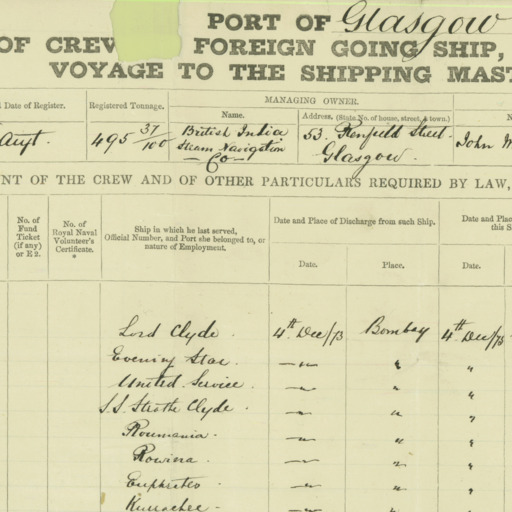 PORT OF Glasgow
OF CREW FOREIGN GOING SHIP,
VOYAGE TO THE SHIPPING MAST
Date of Register.
Registered Tonnage.
MANAGING OWNER.
Name.
Address. (State No. of house, street, & town.)
N
495 37/100
British India
Steam Navigation
Co
53. Renfield Street.
Glasgow.
John
NT OF THE CREW AND OF OTHER PARTICULARS REQUIRED BY LAW,
No. of
Fund
Ticket
(if any)
or E 2.
No. of
Royal Naval
Volunteer's
Certificate.
*
Ship in which he last served,
Official Number, and Port she belonged to, or
nature of Employment.
Date and Place of Discharge from such Ship.
Date.
Place.
Date and Plac
this S
Date.
Lord Clyde. 4th Dec/73 Bombay 4th Dec/73
Evening Star. — " " "
United Service. — " " "
S.S. Strath Clyde. — " " "
Roumania. — " " "
Rowina — " " "
— " " "
Kurrachee — " " "